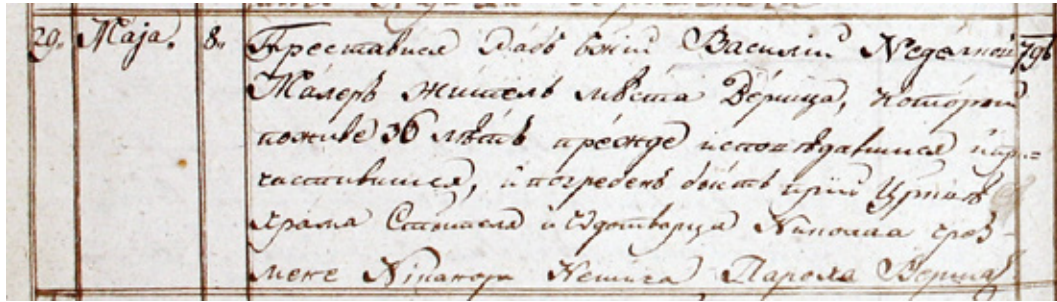 29. Маја. 8. Преставися Рабъ Божій Василій Неделной 796
Малеръ житель мѣста Вершца, которой
поживе 36 лѣтъ прежде исповѣдавшися и при=
частившися, и погребенъ бысть при
храма Стителя и Чдотворца Николаа чрез
мене Никанора Пароха Вершац